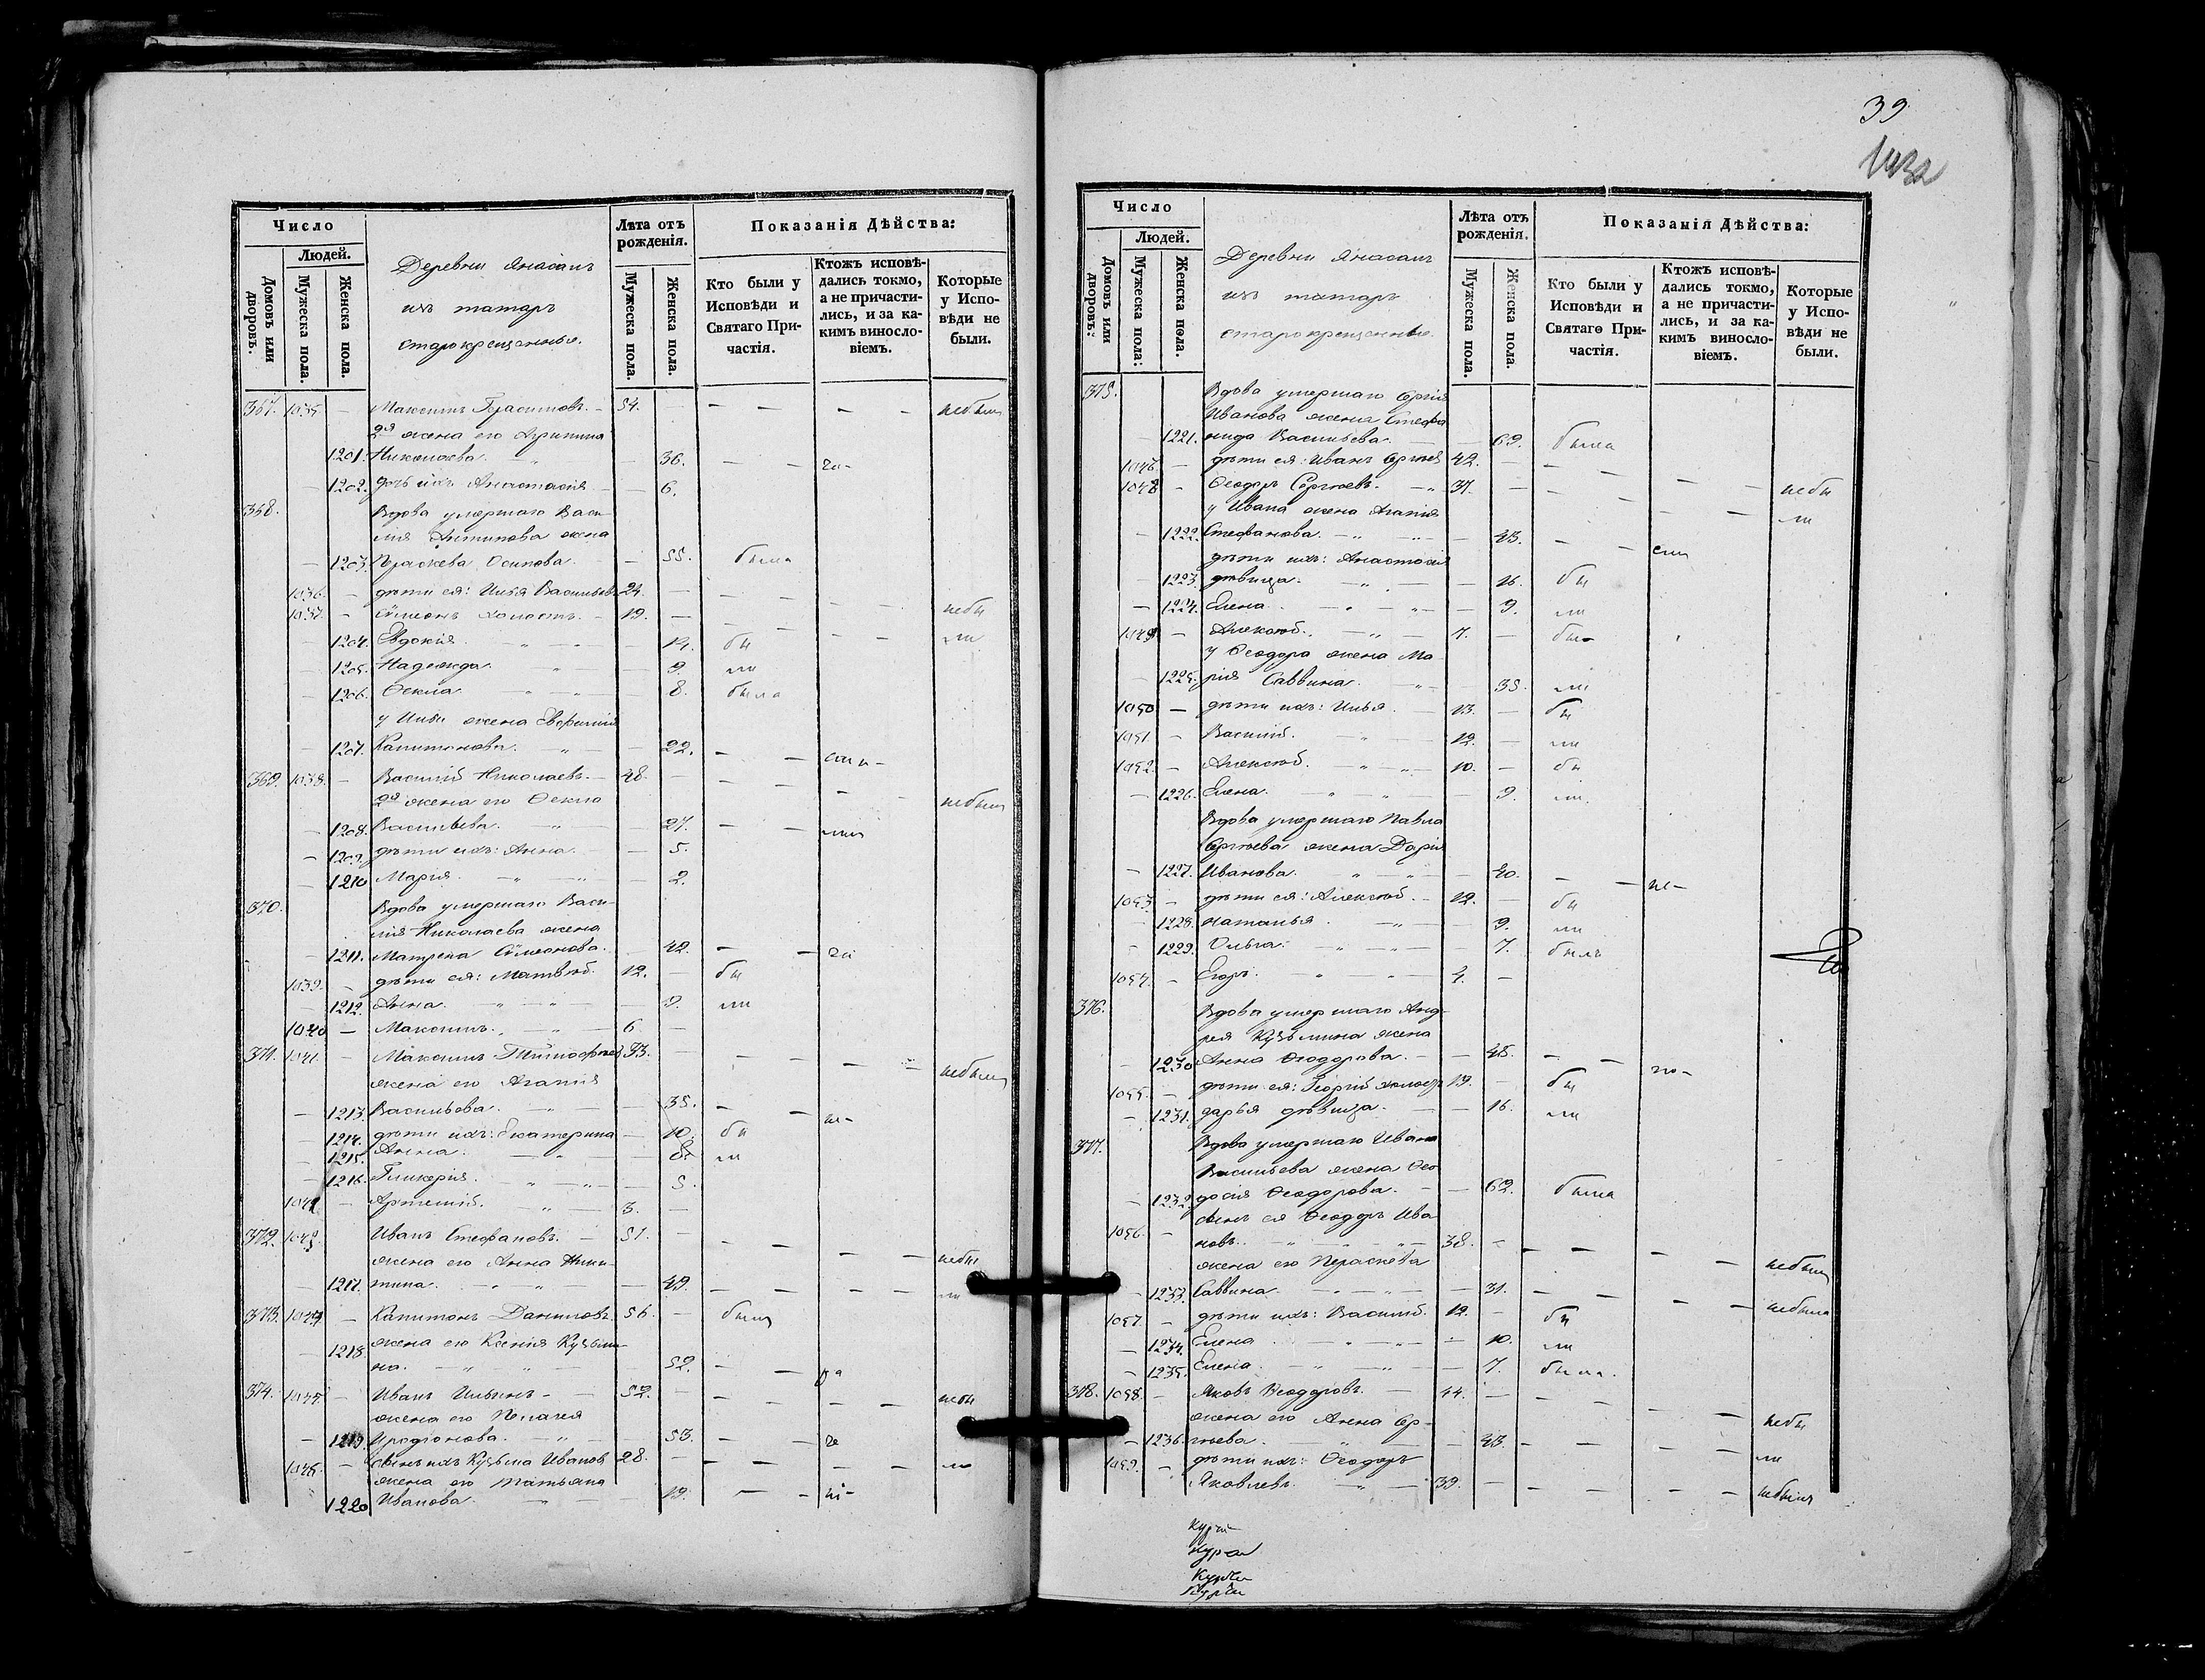 39
Число
Людей.
Домовъ или дворовъ.
Мужеска пола.
Женска пола.
Деревни Янасалъ
изъ татаръ
старокрещенные.
Лѣта отъ рожденія.
Мужеска пола.
Женска пола.
Показанія Дѣйства:
Кто были у Исповѣди и Святаго Причастія.
Ктожъ исповѣдались токмо, а не причастились, и за какимъ винословіемъ.
Которые у Исповѣди не были.
367. 1035. — Максимъ Герасимовъ. — 54. — — — — небылъ
2я жена его Агрипина
1201. Николаева. — 36. — —
— 1202. дочь ихъ Анастасія — 6.
368. Вдова умершаго Васи-
лія Антипова жена
— 1203. Параскева Осипова. — 55. была
1036. — дѣти ея: Илья Васильевъ 24. — — — — —
1037. — Сѵмеонъ холостъ. — 19. — — — — — небы
— 1204. Евдокія. — 14. бы ли
— 1205. Надежда. — 9. ли
— 1206. Ѳекла. — 8. была
у Ильи жена Евфимія
— 1207. Капитонова. — 22. — —
369. 1038. — Василій Николаевъ. — 48. — — — — — небылъ
2я жена его Ѳекла
— 1208. Васильева. — 27. — —
— 1209. дѣти ихъ: Анна. — 5.
— 1210 Марія. — 2.
370. Вдова умершаго Васи-
лія Николаева жена
— 1211. Матрена Сѵмеонова. — 42. — —
1039. — дѣти ея: Матвѣй. 12. — бы
— 1212. Анна. — 9. ли
1040 — Максимъ. — 6. —
371. 1041. — Максимъ Тимофеевъ 33. — — — — — небылъ
жена его Агафія
— 1213. Васильева. — 35. — —
— 1214. дѣти ихъ: Екатерина — 10. бы
— 1215. Анна. — 8. ли
— 1216. Гликерія. — 5.
1042 — Артемій. — 3. —
372. 1043. Иванъ Стефановъ. — 51. — — — — — небы
жена его Анна Ники-
— 1217. тина. — 49. — — — — ли
373. 1044 — Капитонъ Даниловъ. 56. — былъ
жена его Ксенія Кузьми-
1218. на. — 52. — —
374. 1045. — Иванъ Ильинъ — 52. — — — — — небы
жена его Пелагея
— 1219. Иродіонова. — 53. — —
1046. — сынъ ихъ Кузьма Ивановъ 28. — — — — — ли
жена его Татьяна
1220 Иванова. — 19. — —
Число
Людей.
Домовъ или дворовъ:
Мужеска пола:
Женска пола.
Деревни Янасалъ
изъ татаръ
старокрещенные.
Лѣта отъ рожденія.
Мужеска пола.
Женска пола.
Показанія Дѣйства:
Кто были у Исповѣди и Святаго Причастія.
Ктожъ исповѣдались токмо, а не причастились, и за какимъ винословіемъ.
Которые у Исповѣди не были.
375. Вдова умершаго Сергія
Иванова жена Стефа
— 1221. нида Васильева. — 69. была
1046 — дѣти ея: Иванъ Сергѣевъ 42. — — — — — небы
1048 — Ѳеодоръ Сергѣевъ. — 37. — — — — — ли
у Ивана жена Агафія
— 1222. Стефанова. — 43. — —
дѣти ихъ: Анастасія
— 1223. дѣвица. — 16. бы
— 1224. Елена. — 9. ли
1049 — Алексѣй. — 7. — былъ
у Ѳеодора жена Ма
— 1225. рія Саввина. — 35. ли
1050 — дѣти ихъ: Илья. — 13. — бы
1051 — Василій. — 12. — ли
1052. — Алексѣй. — 10. — бы
— 1226. Елена. — 9. ли.
Вдова умершаго Павла
Сергѣева жена Дарія
— 1227. Иванова. — 40. — —
1053. — дѣти ея: Алексѣй. — 12. — бы
— 1228. Наталья. — 9. ли
— 1229. Ольга. — 7. былъ
1054. — Егоръ. — 4. —
376. Вдова умершаго Анд-
рея Кузьмина жена
— 1230 Анна Ѳеодорова. — 45. — —
1055. — дѣти ея: Георгій холостъ 19. — бы
— 1231. дарья дѣвица. — 16. ли
377. Вдова умершаго Ивана
Васильева жена Ѳео
— 1232. досія Ѳеодорова. — 62. была
1056. — сынъ ея Ѳеодоръ Ива
новъ. — 38. — — — — — небылъ
жена его Параскева
— 1233. Саввина. — 31. — — — — небыла
1057. — дѣти ихъ: Василій. 12. — бы
— 1234. Елена — 10. ли
— 1235. Елена. — 7. была.
378. 1058. — Яковъ Ѳеодоровъ. — 44. — — — — — небы
жена его Анна Сер-
— 1236. гѣева. — 43. — — — — ли
1059. — дѣти ихъ: Ѳеодоръ
Яковлевъ. — 39. — — — — — небылъ